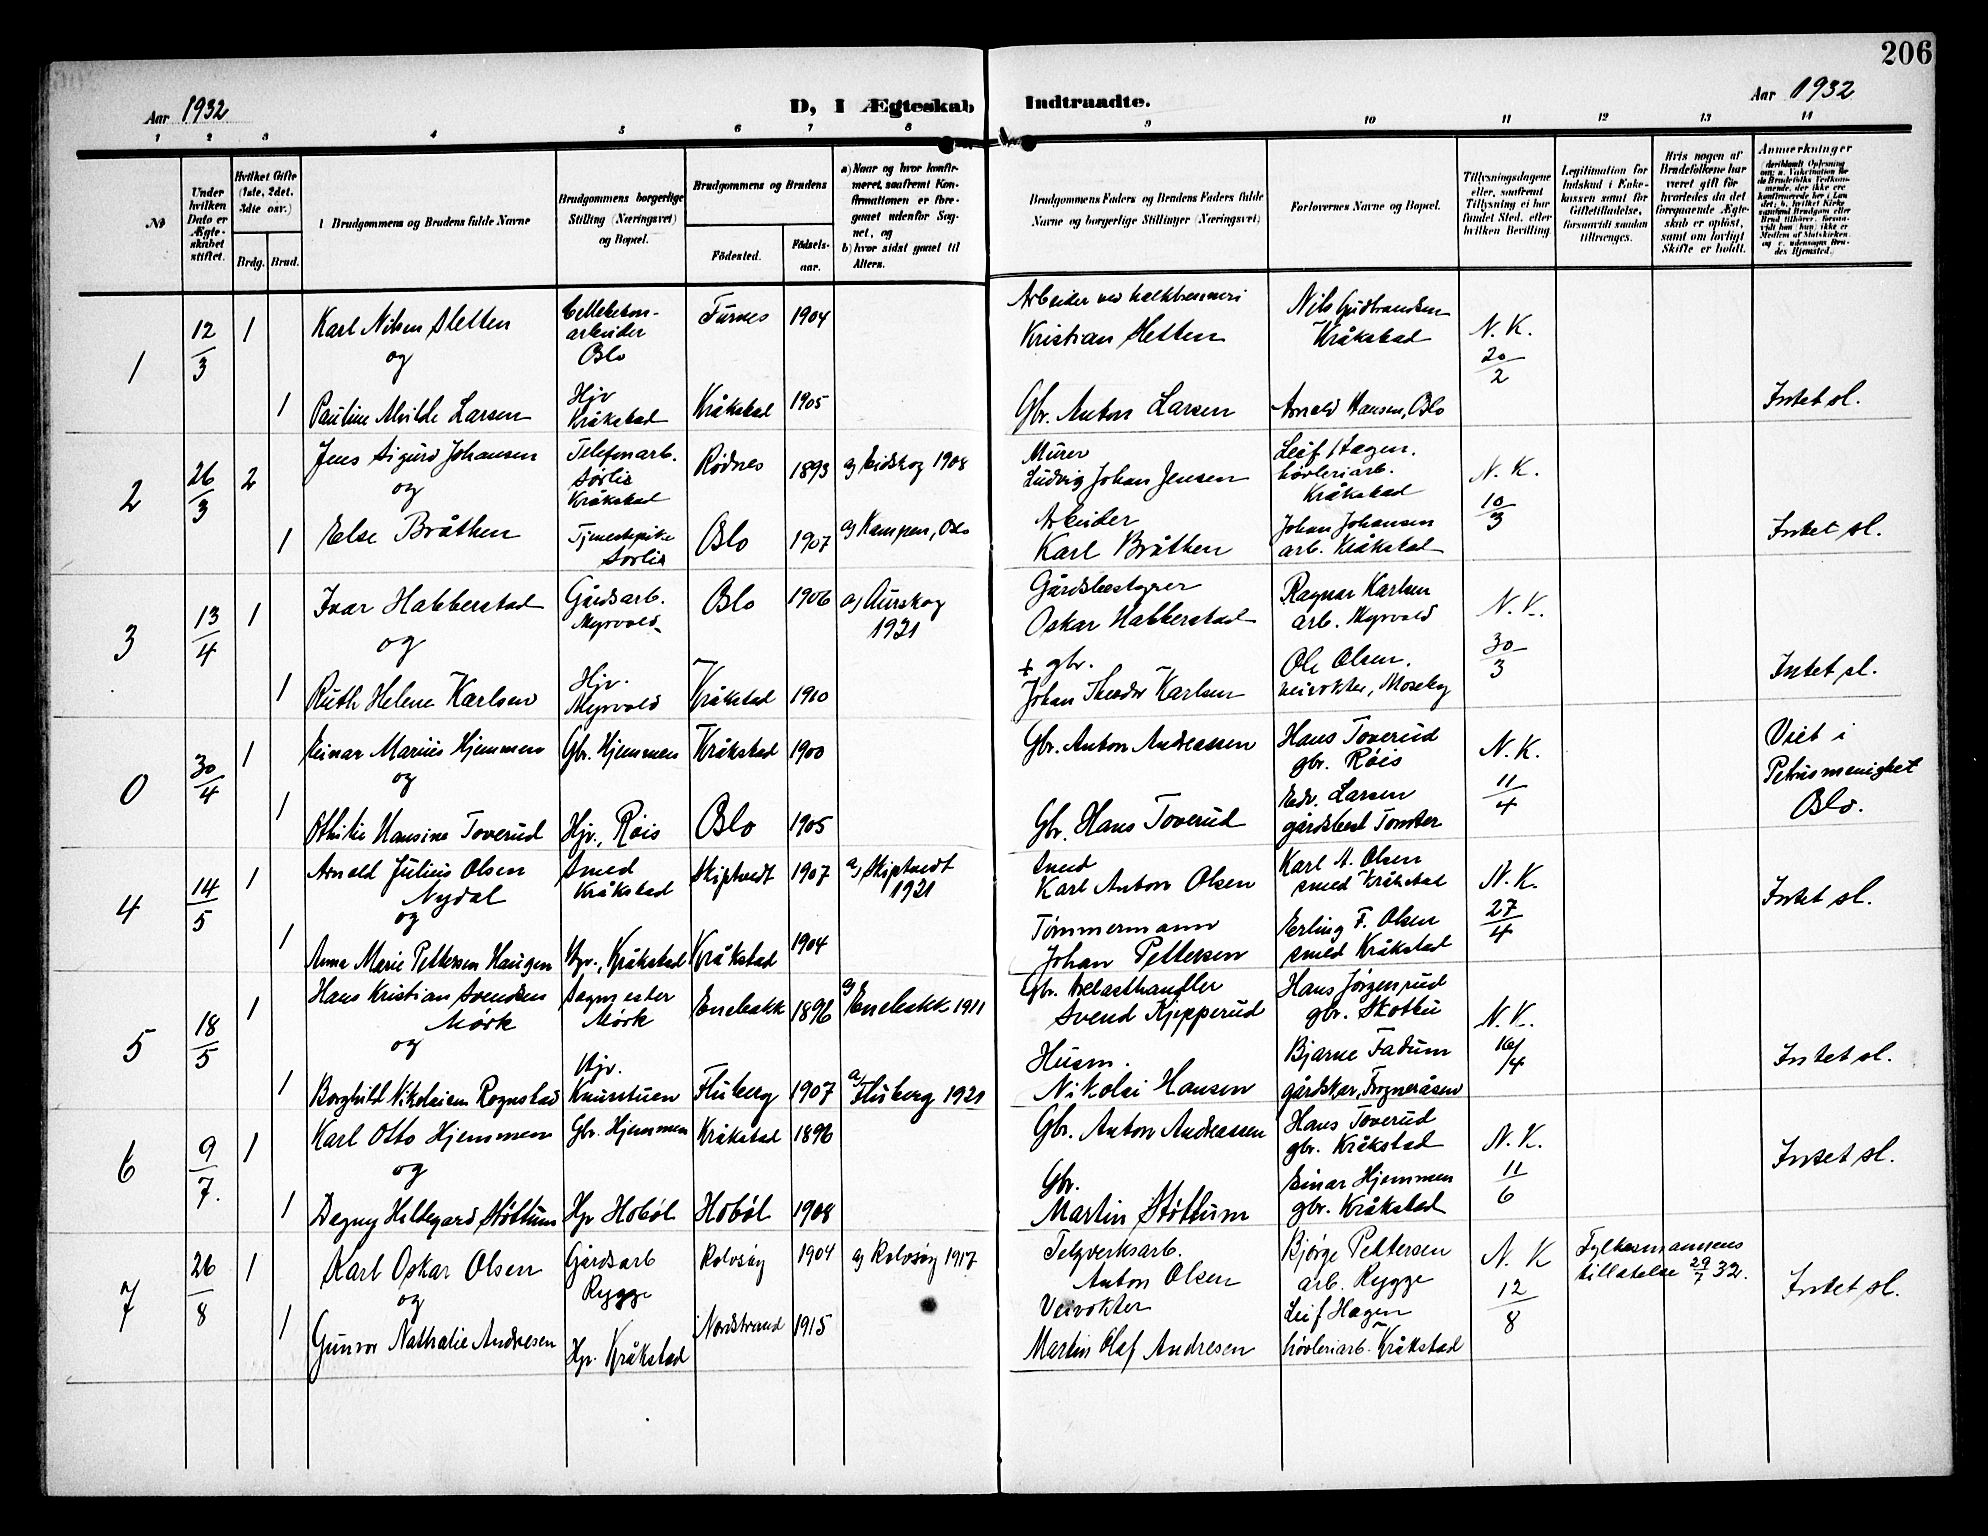 206
Aar 1932
D, I Ægteskab Indtraadte.
Aar 1932
1 2 3 4 5 6 7 8 9 10 11 12 13 14
№
Under hvilken Dato er Ægteskabet stiftet.
Hvilket Gifte (1ste, 2det, 3die osv.)
Brdg. Brud.
Brudgommens og Brudens fulde Navne
Brudgommens borgerlige Stilling (Næringsvei) og Bopæl.
Brudgommens og Brudens
Födested. Födselsaar.
a) Naar og hvor konfirmeret, saafremt Konfirmationen er foregaaet udenfor Sognet, og
b) hvor sidst gaaet til Alters.
Brudgommens Faders og Brudens Faders fulde Navne og borgerlige Stillinger (Næringsvei)
Forlovernes Navne og Bopæl.
Tillysningsdagene eller, saafremt Tillysning ei har fundet Sted, efter hvilken Bevilling.
Legitimation for Indskud i Enkekassen samt for Giftetilladelse, forsaavidt saadan tiltrænges.
Hvis nogen af Brudefolkene har været gift för hvorledes da det foregaaende Ægteskab er oplöst, samt om lovligt Skifte er holdt.
Anmærkninger
1 12/3 1 Karl Nilsen Sletten Cellebetonarbeider Oslo Furnes 1904 Arbeider ved kalkbrenneri Kristian Sletten Nils Gudbrandsen Kråkstad N. K. 20/2
og
1 Pauline Alvilde Larsen Hjv Kråkstad Kråkstad 1905 Gbr. Anton Larsen Arnold Hansen, Oslo Intet sl.
2 26/3 2 Jens Sigurd Johansen Telefonarb. Sørlis Kråkstad Rødnes 1893 a) Eidskog 1908 Murer Ludvig Johan Jensen Leif Hagen. høvleriarb. Kråkstad N. K. 10/3
og
1 Else Bråthen Tjenestepike Sørlis Oslo 1907 a) Kampen, Oslo Arbeider Karl Bråthen Johan Johansen arb. Kråkstad Intet sl.
3 13/4 1 Ivar Habberstad Gårdsarb. Myrvold Oslo 1906 a) Aurskog 1921 Gårdsbestyrer Oskar Habberstad Ragnar Karlsen arb. Myrvold N. K. 30/3
og
1 Ruth Helene Karlsen Hjv. Myrvold Kråkstad 1910 + gbr. Johan Theodor Karlsen Ole Olsen. veivokter, Moseby Intet sl.
0 30/4 1 Einar Marius Hjemmen Gbr. Hjemmen Kråkstad 1900 Gbr. Anton Andreassen Hans Toverud gbr. Røis N. K. 11/4 Viet i Petrusmenighet Oslo.
og
1 Othilie Hansine Toverud Hjv., Røis Oslo 1905 Gbr. Hans Toverud Edv. Larsen gårdsbest Tomter
4 14/5 1 Arnold Julius Olsen Nydal Smed Kråkstad Skiptvedt 1907 a) Skiptvedt 1921 Smed Karl Anton Olsen Karl A. Olsen smed Kråkstad N. K. 27/4 Intet sl.
og
1 Anna Marie Pettersen Haugen Hjv., Kråkstad Kråkstad 1904 Tømmermann Johan Pettersen Erling F. Olsen smed Kråkstad
5 18/5 1 Hans Kristian Svendsen Mørk Sagmester Mørk Enebakk 1896 a) Enebakk 1911 Gbr. Svend Kjepperud Hans Jørgenrud gbr. Skottu N. K. 16/4
og
1 Borghild Nikolaisen Rognstad Hjv. Knurstuen Fluberg 1907 a) Fluberg 1921 Husm. Nikolai Hansen Bjarne Fadum gårdskar, Frogneråsen Intet sl.
6 9/7. 1 Karl Otto Hjemmen Gbr. Hjemmen Kråkstad 1896 Gbr. Anton Andreassen Hans Toverud gbr. Kråkstad N. K. 11/6 Intet sl.
og
1 Dagny Hildegard Støttum Hjv Hobøl Hobøl 1908 Gbr. Martin Støttum Einar Hjemmen gbr. Kråkstad
7 26/8 1 Karl Oskar Olsen Gårdsarb Rygge Rolvsøy 1904 a) Rolvsøy 1917 Teglverksarb. Anton Olsen Bjørge Pettersen arb. Rygge N. K 12/8 Fylkesmannens tillatelse 29/7 32. Intet sl.
og
1 Gunvor Nathalie Andresen Hjv. Kråkstad Nordstrand 1915 Veivokter Martin Olaf Andresen Leif Hagen høvleriarb. Kråkstad